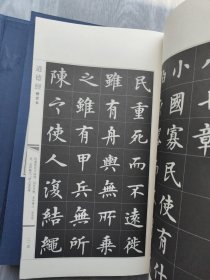 七章
小國寡民使有什
民重死而不遠徙
雖有舟輿無所乘
之雖有甲兵無所
陳之使人復結繩
道德經